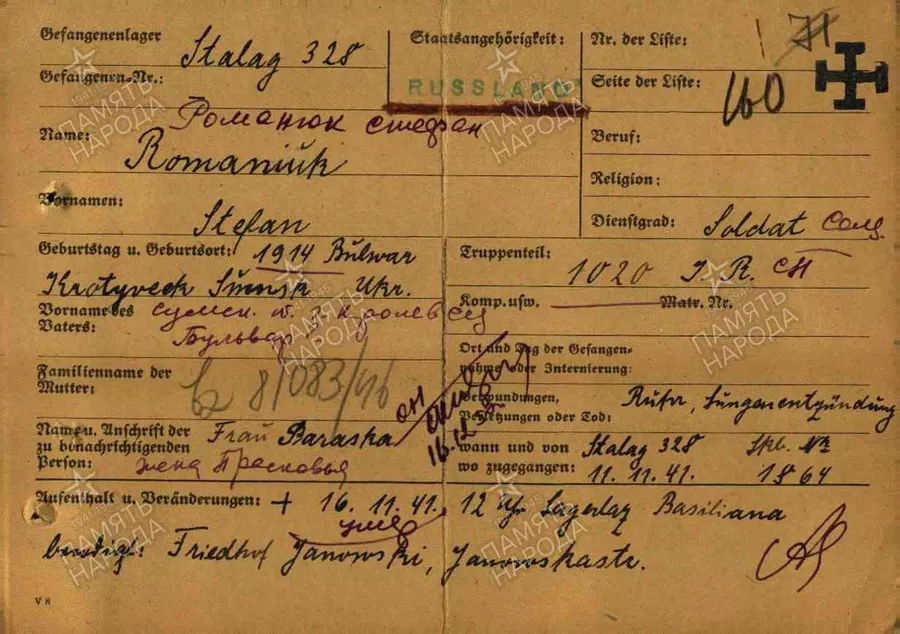 Gefangenenlager Stalag 328
Gefangenen-Nr.:
Staatsangehörigkeit:
RUSSLAND
Nr. der Liste: 71
Seite der Liste:
160
Beruf:
Religion:
Романюк Стефан
Name: Romaniuk
Vornamen: Stefan
Dienstgrad: Soldat Солд.
Geburtstag u. Geburtsort: 1914 Bulwar
Krotyveck Sumsk Ukr.
Truppenteil: 1020 J. R. СП
Komp. usw. Matr. Nr.
Vorname des Vaters:
Бульвар
Ort und Tag der Gefangennahme oder Internierung:
Familienname der Mutter:
8/083/46
Verwundungen, Verletzungen oder Tod: Ruhr, Lungenentzündung
16.12.
Name u. Anschrift der zu benachrichtigenden Person: Frau Baraska
жена Прасковья
wann und von wo zugegangen: Stalag 328
11.11.41. 1864
Aufenthalt u. Veränderungen: + 16.11.41. 12 Uhr Lagerlaz Basiliana
умер
beerdigt: Friedhof Janowski, Janowskastr.
V 8
ПАМЯТЬ НАРОДА